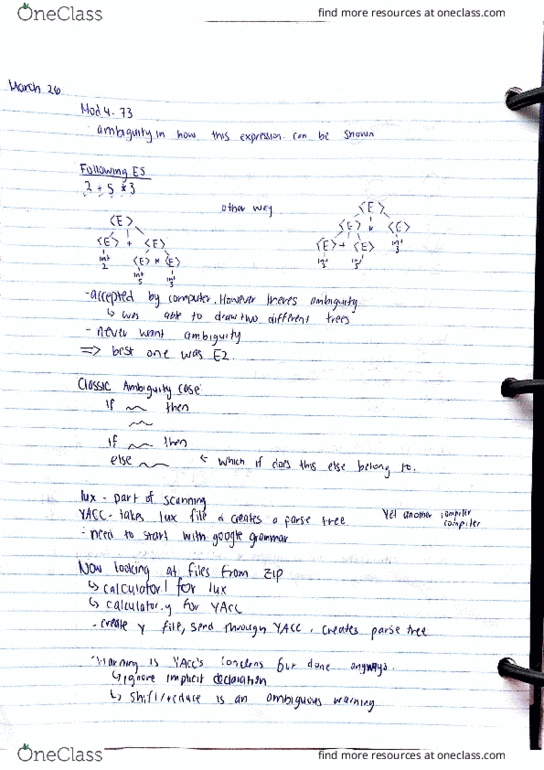 OneClass
find more resources at oneclass.com
March 26
Mod 4. 73
- ambiguity in how this expression can be shown
Following E5
2 + 5 * 3
other way
<E>
<E> + <E>
int 2
<E> * <E>
int 5 int 3
<E>
<E> * <E>
<E> + <E> int 3
int 2
-accepted by computer. However theres ambiguity
↳ was able to draw two different trees
- never want ambiguity
=> best one was E2.
Classic Ambiguity case:
if ~ then
~
if ~ then
else ~ ← which if does this else belong to.
lux - part of scanning
YACC - takes lux file & creates a parse tree
Yet another compiler compiler
- need to start with google grammar
Now looking at files from ZIP
↳ calculator.l for lux
↳ calculator.y for YACC
- create y file, send through YACC, creates parse tree
- Warning is YACC's concerns but done anyways.
↳ ignore implicit declaration
↳ shift/reduce is an ambiguous warning
OneClass
find more resources at oneclass.com